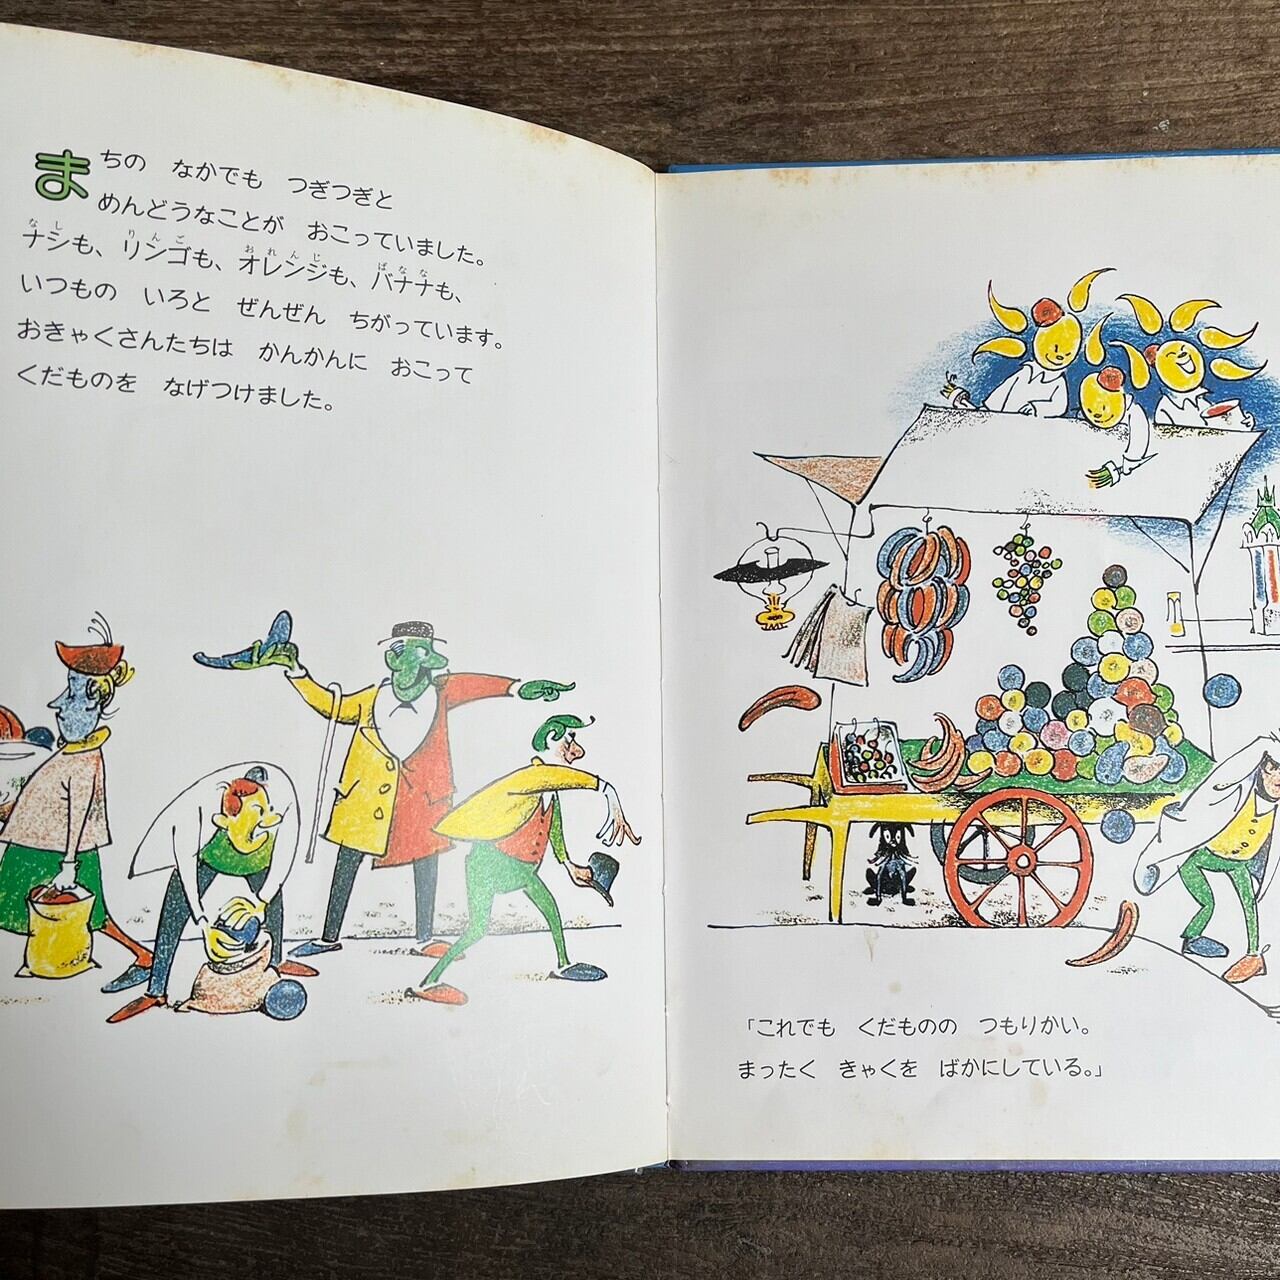 まちの なかでも つぎつぎと
めんどうなことが おこっていました。
ナシも、リンゴも、オレンジも、バナナも、
いつもの いろと ぜんぜん ちがっています。
おきゃくさんたちは かんかんに おこって
くだものを なげつけました。
「これでも くだものの つもりかい。
まったく きゃくを ばかにしている。」